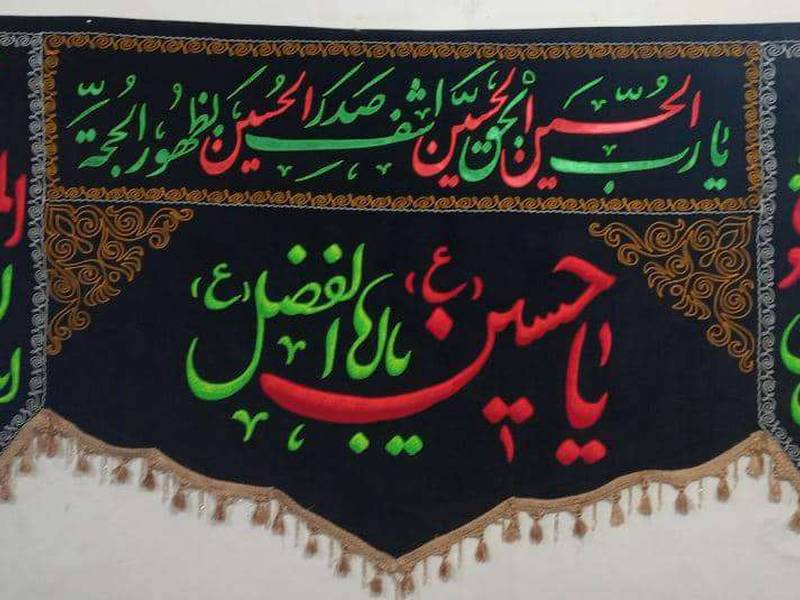 يا رب الحسين بحق الحسين اشف صدر الحسين بظهور الحجة
يا حسين (ع)
يا ابا الفضل (ع)